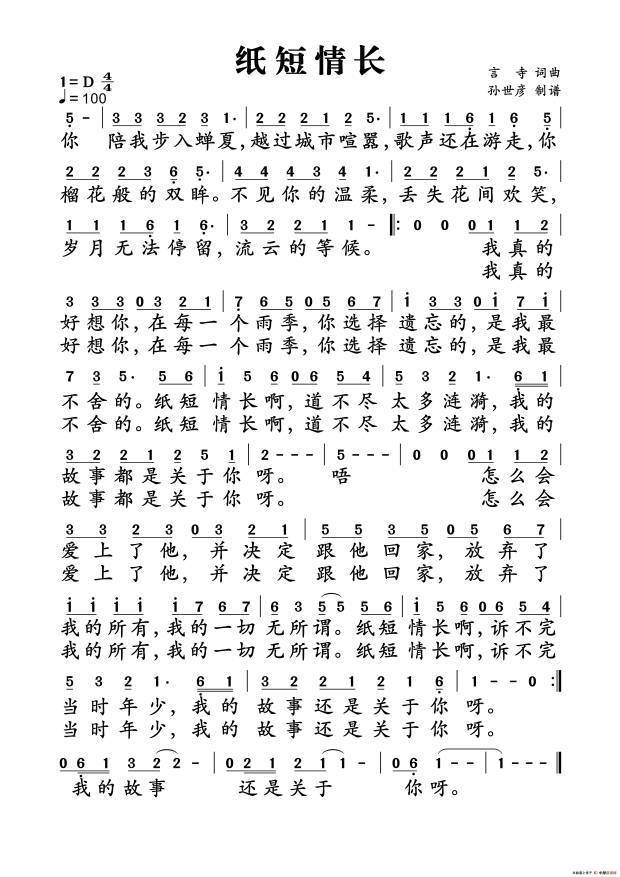 纸短情长
1=D 4/4
言 寺 词曲
♩=100
孙世彦 制谱
5 - | 3 3 3 2 3 1· | 2 1 2 2 2 5· | 1 1 1 6 1 6 5 |
你 陪我步入蝉夏,越过城市喧嚣,歌声还在游走,你
2 2 2 3 6 5· | 4 4 4 3 4 1· | 2 1 2 2 2 3· |
榴花般的双眸。不见你的温柔,丢失花间欢笑,
1 1 1 6 1 6· | 3 2 2 1 1 - ‖: 0 0 0 1 1 2 |
岁月无法停留,流云的等候。 我真的
我真的
3 3 3 0 3 2 1 | 7 6 5 0 5 6 7 | i 3 3 0 i 7 i |
好想你,在每一个雨季,你选择 遗忘的,是我最
好想你,在每一个雨季,你选择 遗忘的,是我最
7 3 5· 5 6 | i 5 6 0 6 5 4 | 5 3 2 1· 6 1 |
不舍的。纸短 情长啊,道不尽 太多涟漪,我的
不舍的。纸短 情长啊,道不尽 太多涟漪,我的
3 2 2 1 2 5 1 | 2 - - - | 5 - - - | 0 0 0 1 1 2 |
故事都是关于你 呀。 唔 怎么会
故事都是关于你 呀。 怎么会
3 3 2 3 0 3 2 1 | 5 5 3 5 0 5 6 7 |
爱上了他,并决定 跟他回家,放弃了
爱上了他,并决定 跟他回家,放弃了
i i i i i 7 6 7 | 6 3 5 5 5 6 | i 5 6 0 6 5 4 |
我的所有,我的一切 无所谓。纸短 情长啊,诉不完
我的所有,我的一切 无所谓。纸短 情长啊,诉不完
5 3 2 1· 6 1 | 3 2 2 1 2 1 6 | 1 - - 0 :‖
当时年少,我的 故事还是关于你 呀。
当时年少,我的 故事还是关于你 呀。
0 6 1 3 2 2 - | 0 2 1 2 1 1 - | 0 6 1 - - | 1 - - - ‖
我的故事 还是关于 你呀。